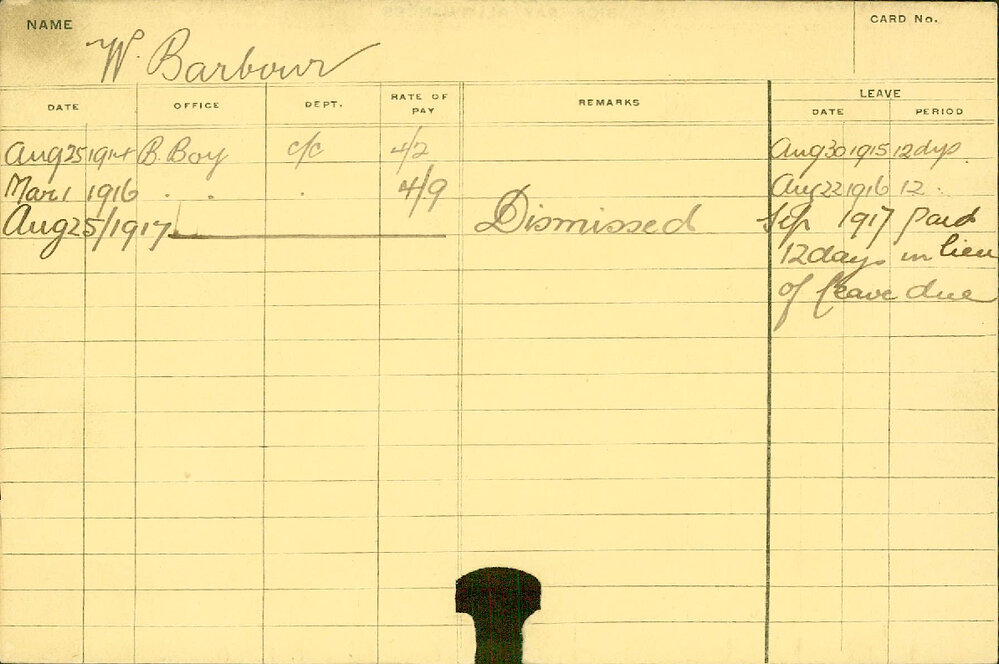 NAME
CARD No.
W. Barbour
LEAVE
DATE OFFICE DEPT. RATE OF PAY REMARKS DATE PERIOD
Aug 25 1914 B. Boy c/c 4/2 Aug 30 1915 12 dys
Mar 1 1916 . . . 4/9 Aug 22 1916 12 .
Aug 25/1917 Dismissed Sep 1917 Paid
12 days in lieu
of leave due